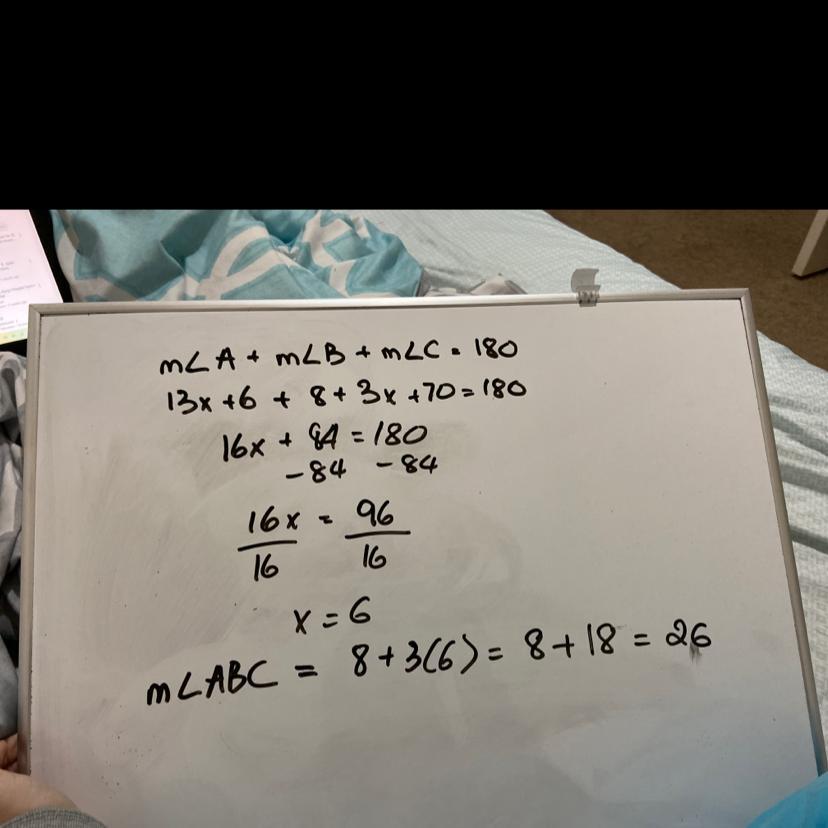 m∠A + m∠B + m∠C = 180
13x + 6 + 8 + 3x + 70 = 180
16x + 84 = 180
- 84 - 84
16x = 96
16 16
x = 6
m∠ABC = 8 + 3(6) = 8 + 18 = 26